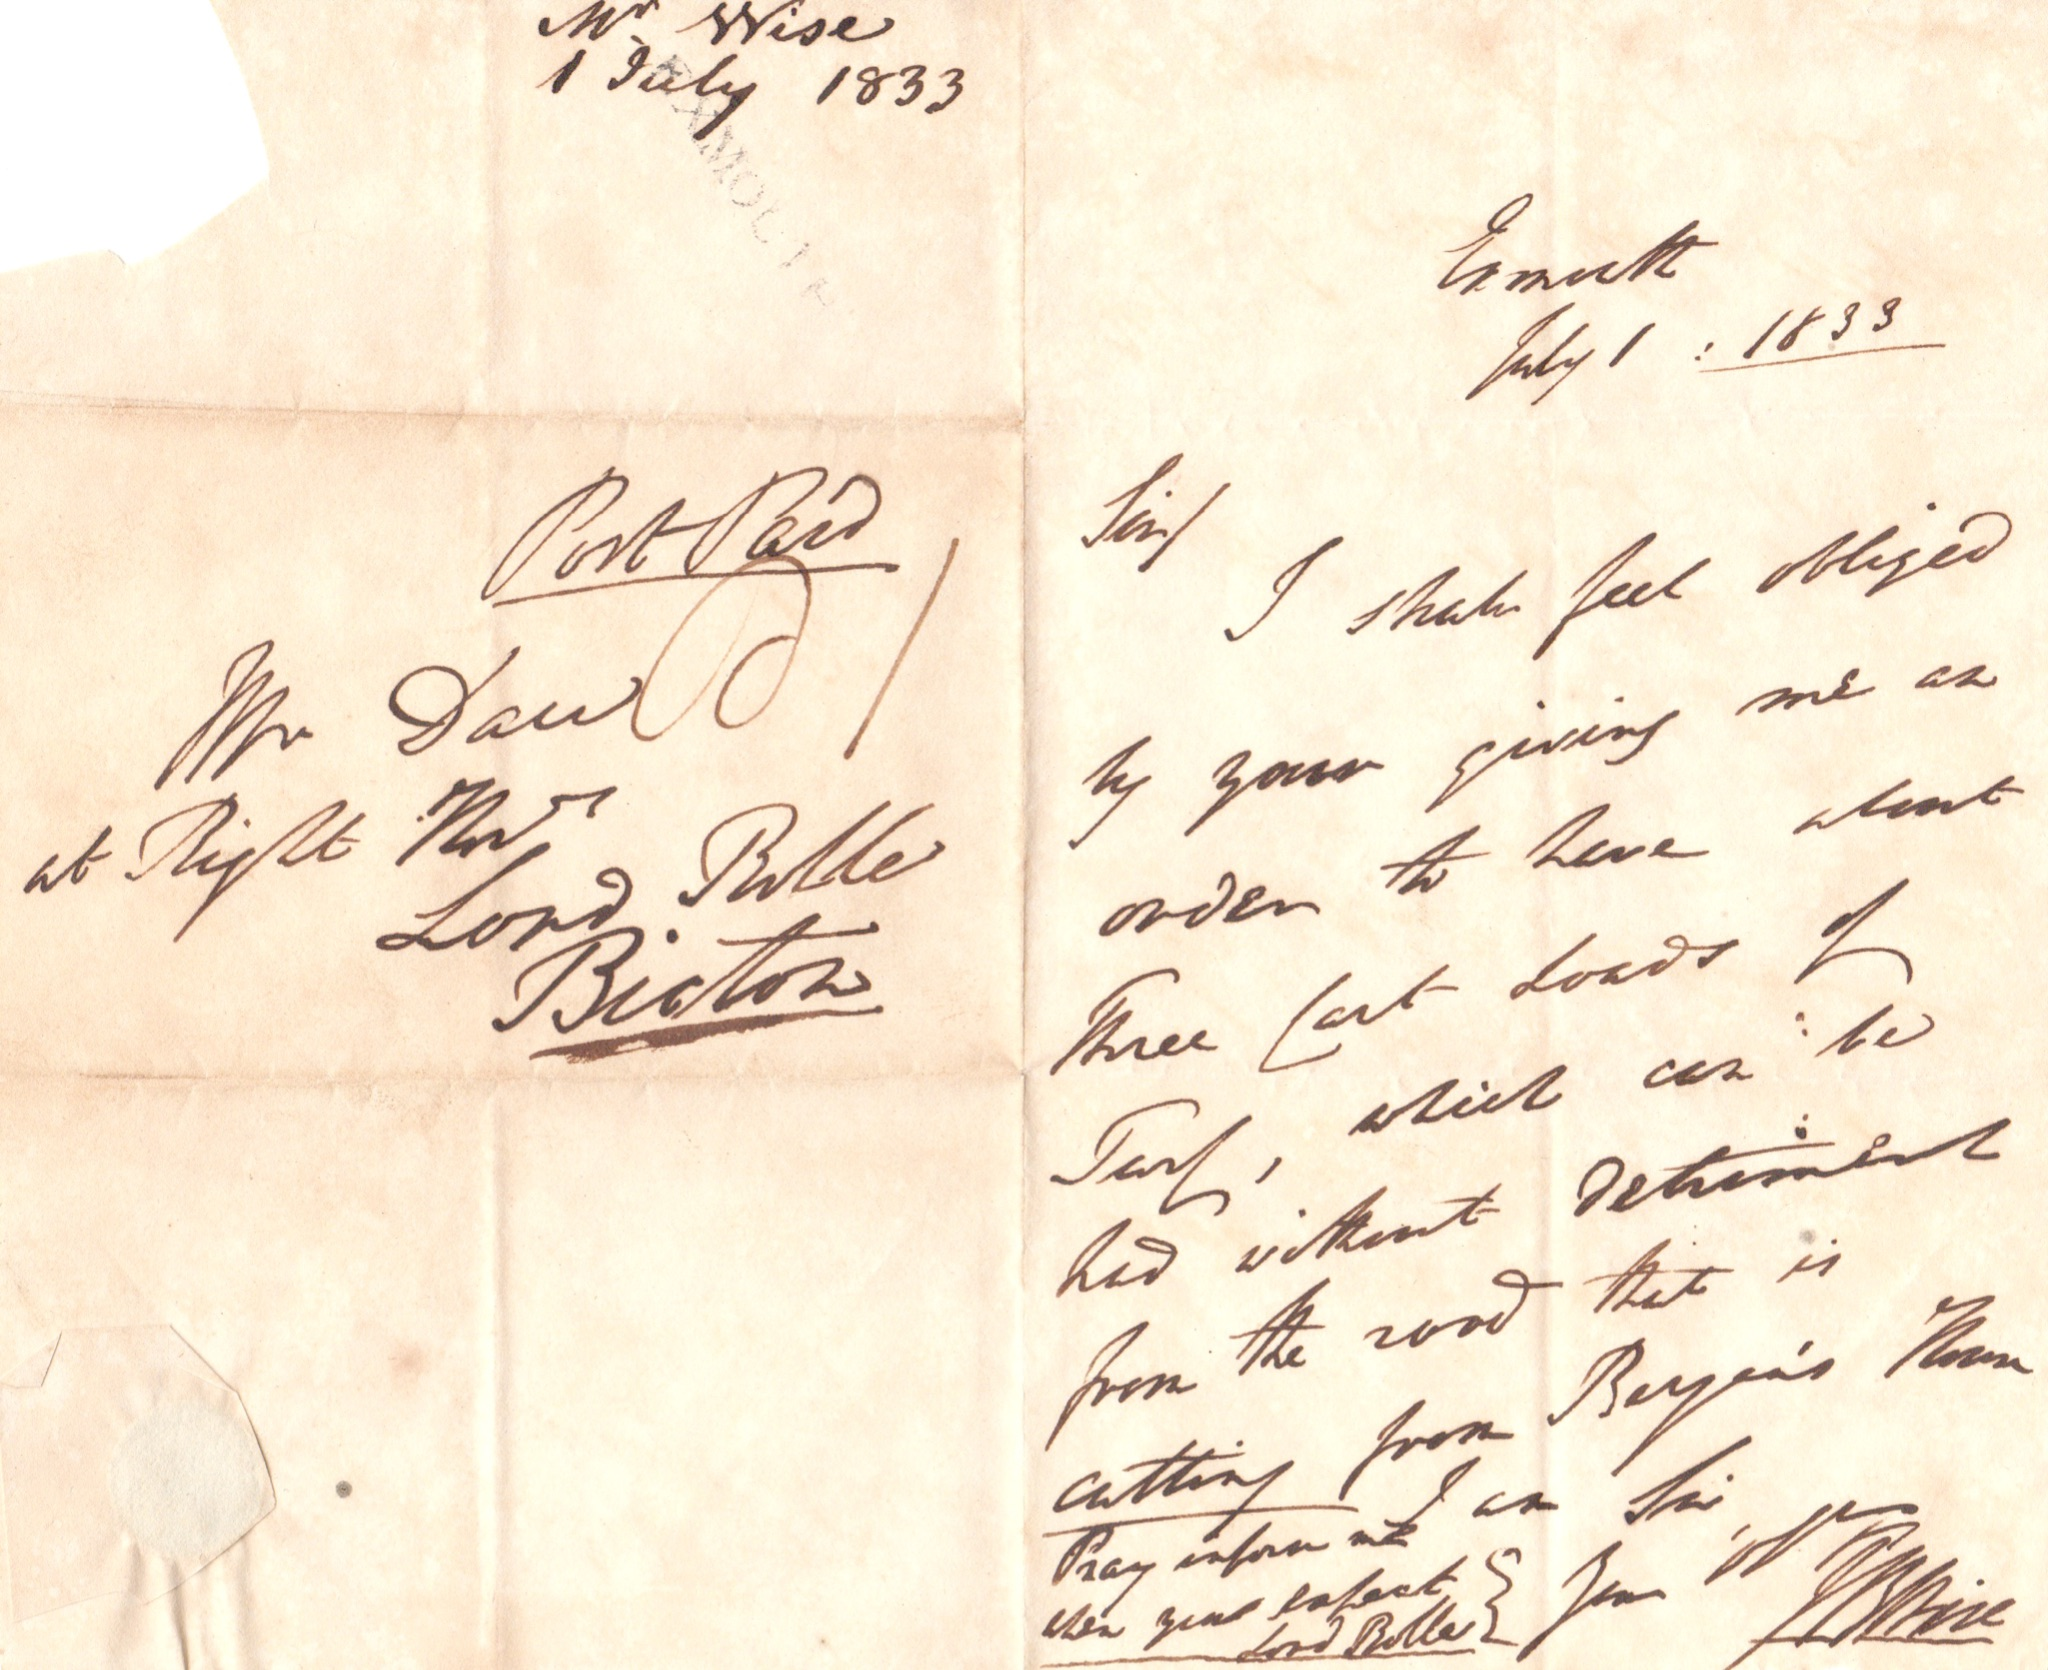 Mr Wise
1 July 1833
EXMOUTH
Post Paid
Mr Daw
at Right Honr
Lord Rolle
Bicton
Exmouth
July 1 : 1833
Sir/
I shall feel obliged
by your giving me an
order to have about
Three Cart Loads of
Turf, which can be
had without detriment
from the road that is
cutting from Bargain's
I am Sir,
Pray inform me
when you expect
Lord Rolle
Your
Wise